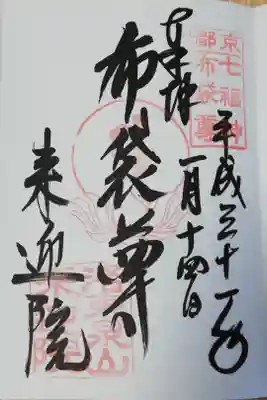 京七福神
都布袋尊
奉拝
平成三十一年
一月十四日
布袋尊
来迎院